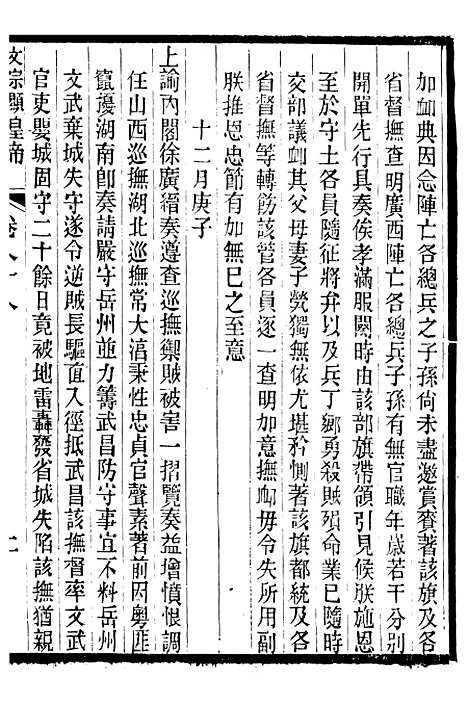 加䘏典因念陣亡各總兵之子孫尙未盡邀賞賚著該旗及各
省督撫查明廣西陣亡各總兵子孫有無官職年歲若干分別
開單先行具奏俟孝滿服闋時由該部旗帶領引見候朕施恩
至於守土各員隨征將弁以及兵丁鄉勇殺賊殞命業已隨時
交部議䘏其父母妻子煢獨無依尤堪矜惻著該旗都統及各
省督撫等轉飭該管各員逐一查明加意撫䘏毋令失所用副
朕推恩忠節有加無已之至意
十二月庚子
上諭內閣徐廣縉奏遵查巡撫禦賊被害一摺覽奏益增憤恨調
任山西巡撫湖北巡撫常大淳秉性忠貞官聲素著前因粵匪
竄擾湖南卽奏請嚴守岳州並力籌武昌防守事宜不料岳州
文武棄城失守遂令逆賊長驅直入徑抵武昌該撫督率文武
官吏嬰城固守二十餘日竟被地雷轟發省城失陷該撫猶親
文宗顯皇帝
卷八十八